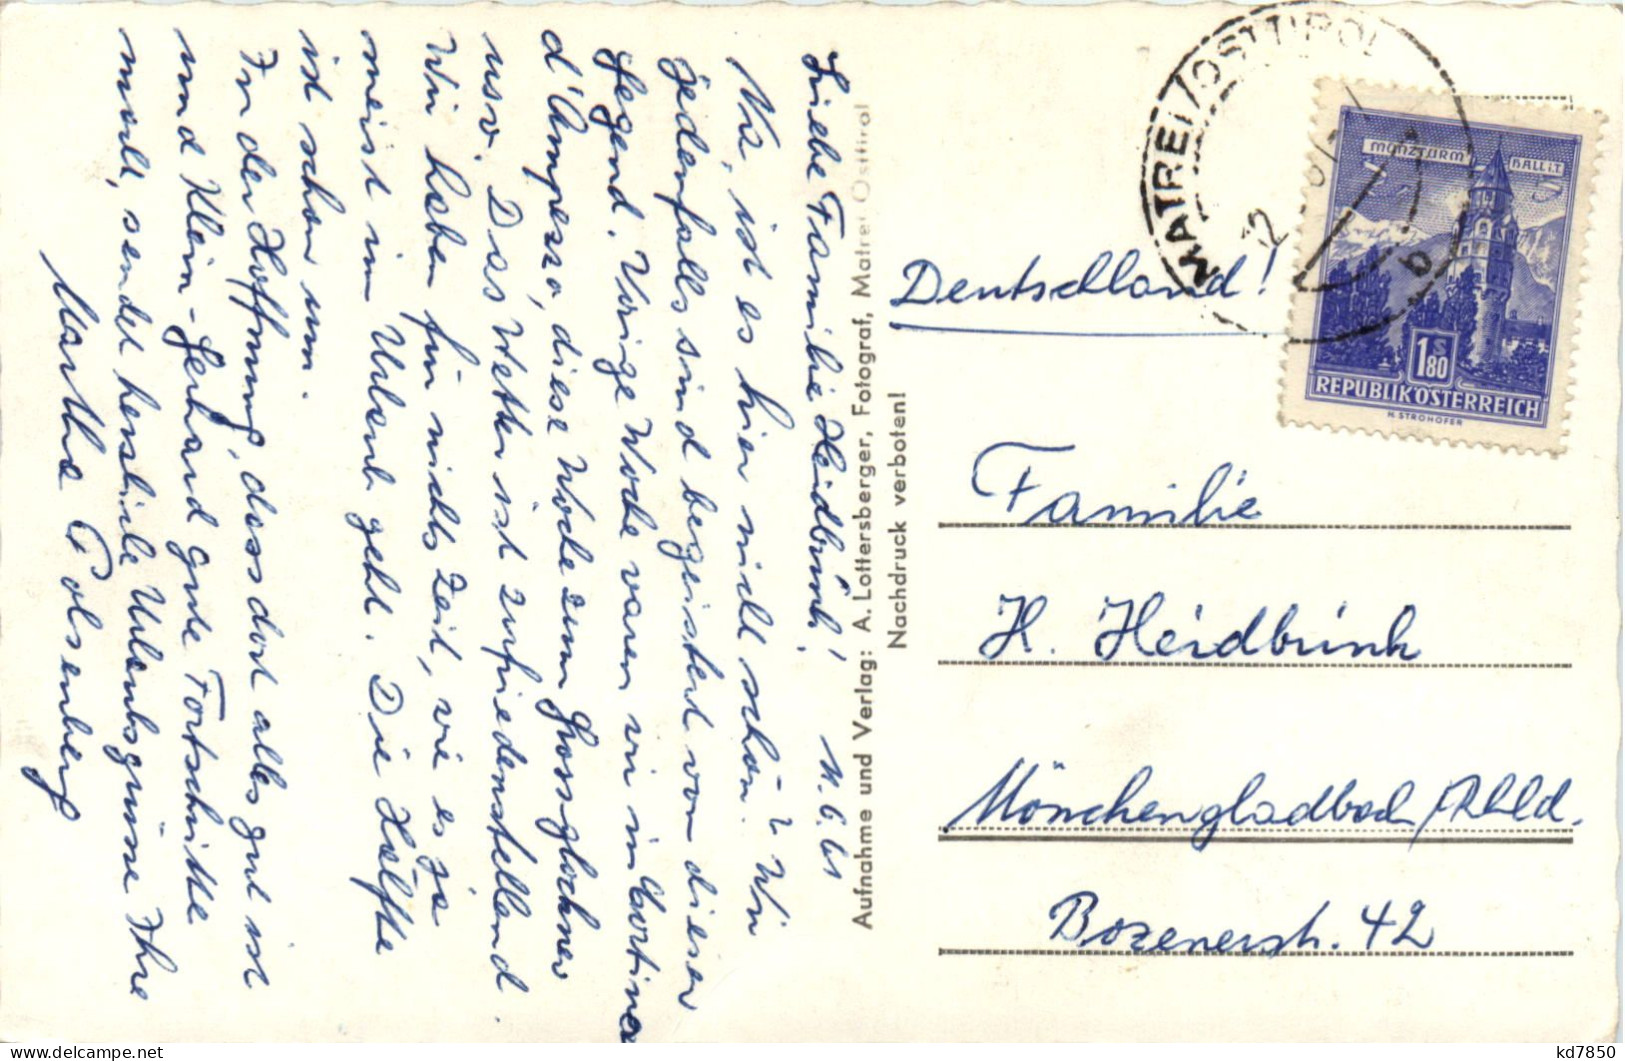 Liebe Familie Heidbrink! 11.6.61
Na, ist es hier nicht schön? Wir
jedenfalls sind begeistert von dieser
Gegend. Vorige Woche waren wir in Cortina
d'Ampezzo, diese Woche zum Grossglockner
usw. Das Wetter ist zufriedenstellend.
Wir haben für nichts Zeit, wie es ja
meist im Urlaub geht. Die Hälfte
ist schon um.
In der Hoffnung, dass dort alles gut ist
und Klein-Gerhard gute Fortschritte
macht, sendet herzliche Urlaubsgrüsse Ihre
Martha
Aufnahme und Verlag: A. Lottersberger, Fotograf, Matrei Osttirol
Nachdruck verboten!
MATREI/OSTTIROL
12
b
MÜNZTURM HALL i.T.
S
1.80
REPUBLIK ÖSTERREICH
H. STROHOFER
Deutschland!
Familie
H. Heidbrink
Mönchengladbach/Rhld.
Bozenerstr. 42
kd7850